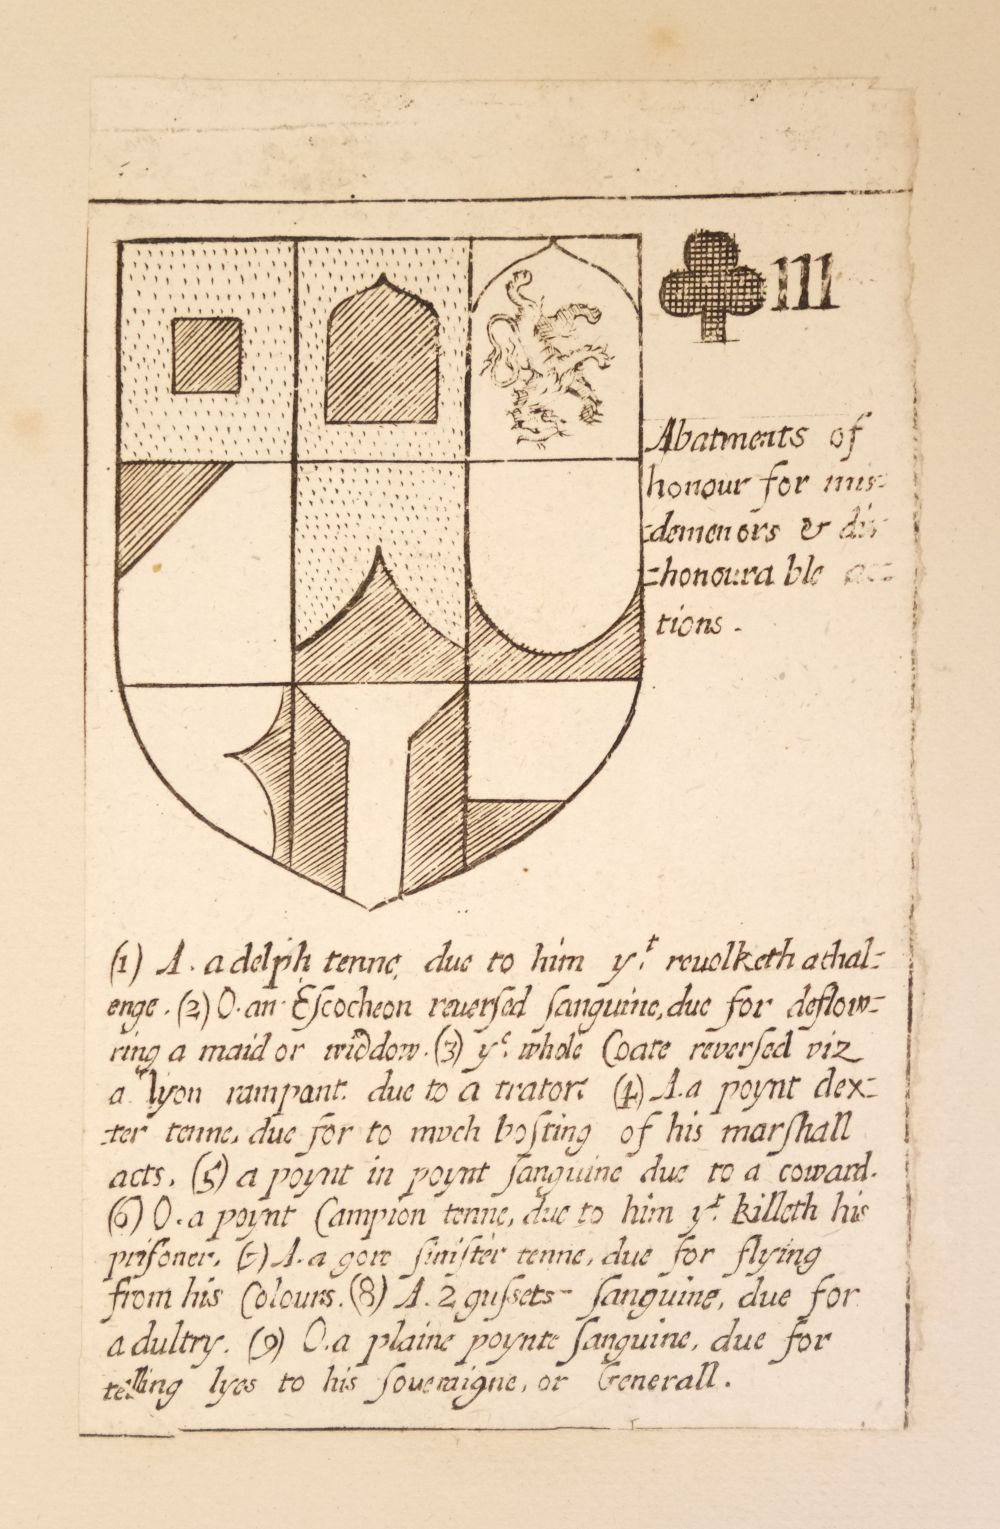 III
Abatments of
honour for mis-
demenors & dis
-honourable ac-
tions.
(1) A. a delph tenne, due to him yt. revolketh a chal-
enge. (2) O. an Escocheon reversed sanguine, due for deflow-
ring a maid or widdow. (3) ye. whole Coate reversed viz
a lyon rampant. due to a trator: (4) A. a poynt dex-
-ter tenne, due for to much bosting of his marshall
acts. (5) a poynt in poynt sanguine due to a coward.
(6) O. a poynt Campion tenne, due to him yt. killeth his
prisoner. (7) A. a gore sinister tenne, due for flying
from his Colours. (8) A. 2 gussets- sanguine, due for
adultry. (9) O. a plaine poynte sanguine, due for
telling lyes to his soveraigne, or Generall.